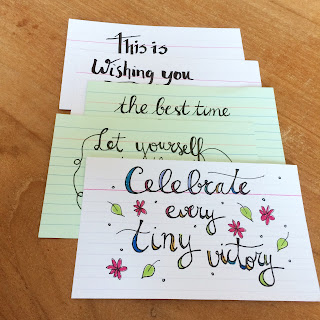 This is
Wishing you
the best time
Let yourself
Celebrate
every
tiny victory